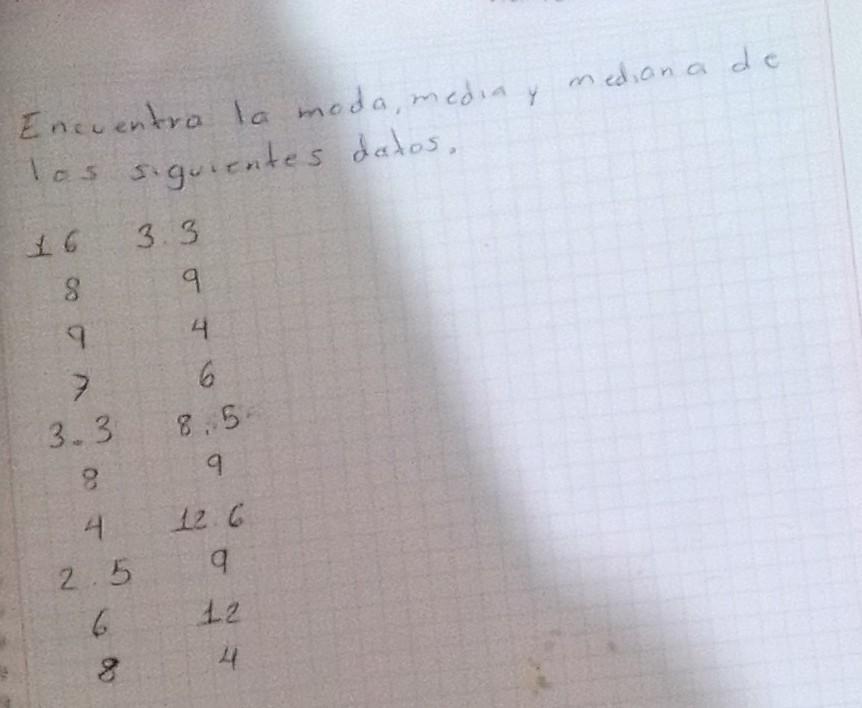 Encuentra la moda, media y mediana de
los siguientes datos.
16 3.3
8 9
9 4
7 6
3.3 8.5
8 9
4 12.6
2.5 9
6 12
8 4